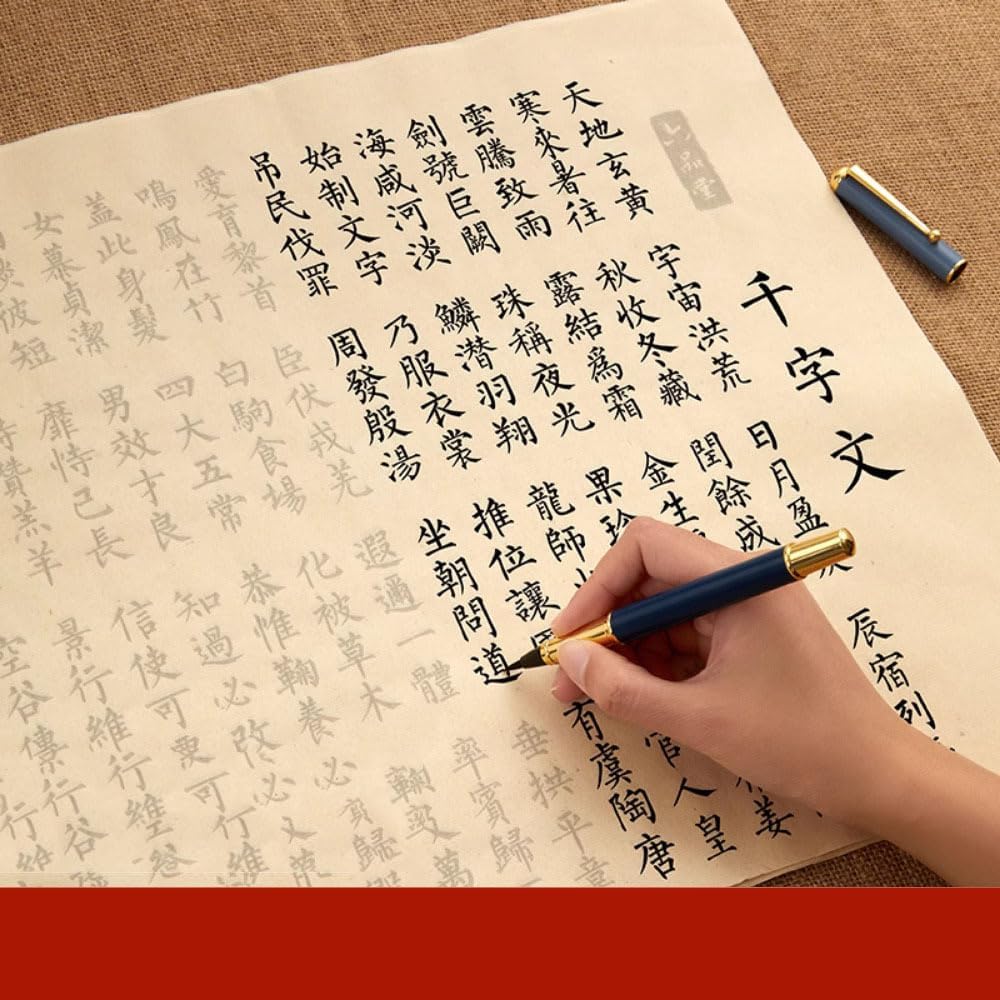 六品堂
千字文
天地玄黄 宇宙洪荒 日月盈 辰宿列
寒來暑往 秋收冬藏 閏餘成
雲騰致雨 露結爲霜 金生
劍號巨闕 珠稱夜光 果珍 姜
海咸河淡 鱗潛羽翔 龍師 官人皇
始制文字 乃服衣裳 推位讓 有虞陶唐
吊民伐罪 周發殷湯 坐朝問道 垂拱平章
愛育黎首 臣伏戎羌 遐過一體 率賓歸
鳴鳳在竹 白駒食場 化被草木 萬
蓋此身髮 四大五常 恭惟鞠養 必 歸
女慕貞潔 男效才良 知過必改 必
彼短 靡恃己長 信使可 可行維
讚羔羊 景行維行維
空谷傳行谷